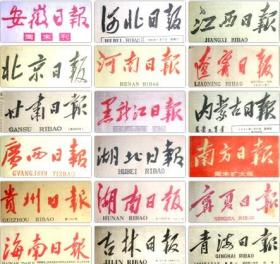 安徽日報
周末刊
河北日报
HEBEI RIBAO
江西日报
JIANGXI RIBAO
北京日報
河南日报
HENAN RIBAO
遼寧日報
LIAONING RIBAO
甘肃日报
GANSU RIBAO
黑龍江日報
内蒙古日報
廣西日報
GVANGJSIH YIZBAU
湖北日報
HUBEI RIBAO
南方日报
周末扩大版
贵州日報
GUIZHOU RIBAO
湖南日報
HUNAN RIBAO
寧夏日報
NINGXIA RIBAO
海南日报
吉林日报
JILIN RIBAO
青海日報
QINGHAI RIBAO